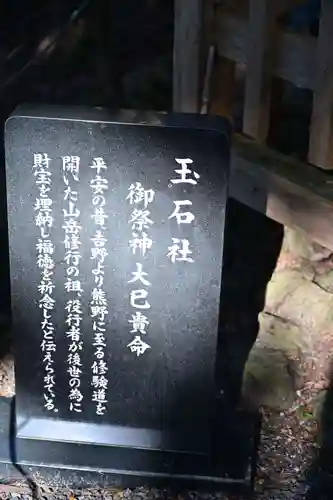 玉石社
御祭神 大巳貴命
平安の昔、吉野より熊野に至る修験道を
開いた山岳修行の祖、役行者が後世の為に
財宝を埋納し福徳を祈念したと伝えられている。